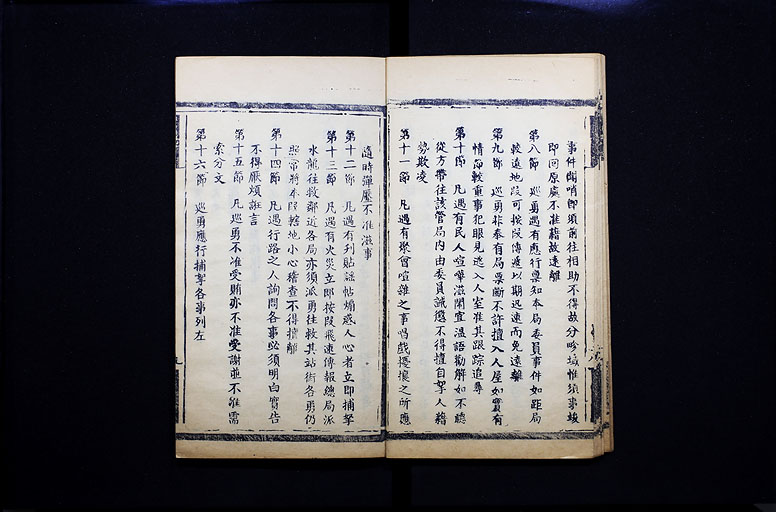 事件聞哨即須前往相助不得故分畛域惟須事竣
即回原處不准藉故遠離
第八節　巡勇遇有應行稟知本局委員事件如距局
較遠地段可按段傳遞以期迅速而免遠離
第九節　巡勇非奉有局票斷不許擅入人屋如實有
情節較重事犯眼見逃入人室准其跟踪追尋
第十節　凡遇有民人喧嘩滋鬧宜溫語勸解如不聽
從方帶往該管局內由委員誡懲不得擅自拏人藉
勢欺凌
第十一節　凡遇有聚會喧雜之事唱戲擾攘之所應
隨時彈壓不准滋事
第十二節　凡遇有刋貼謠帖煽惑人心者立即捕拏
第十三節　凡遇有火災立即按段飛速傳報總局派
水龍往救鄰近各局亦須派勇往救其站街各勇仍
照常將本段轄地小心稽查不得擅離
第十四節　凡遇行路之人詢問各事必須明白實告
不得厭煩誑言
第十五節　凡巡勇不准受賄亦不准受謝並不准需
索分文
第十六節　巡勇應行捕拏各事列左